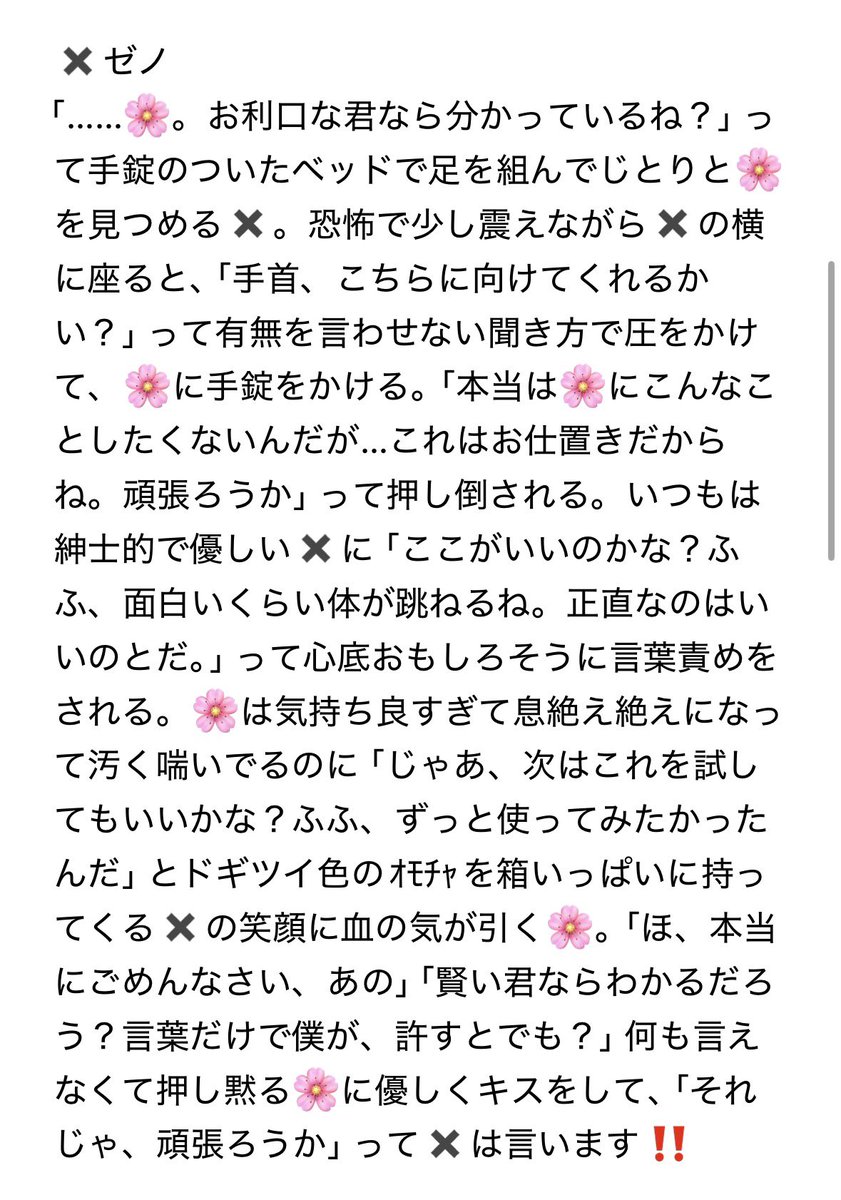 ✖️ ゼノ
「……🌸。お利口な君なら分かっているね？」っ
て手錠のついたベッドで足を組んでじとりと🌸
を見つめる ✖️ 。恐怖で少し震えながら ✖️ の横
に座ると、「手首、こちらに向けてくれるか
い？」って有無を言わせない聞き方で圧をかけ
て、🌸に手錠をかける。「本当は🌸にこんなこ
としたくないんだが...これはお仕置きだから
ね。頑張ろうか」って押し倒される。いつもは
紳士的で優しい ✖️ に「ここがいいのかな？ふ
ふ、面白いくらい体が跳ねるね。正直なのはい
いのとだ。」って心底おもしろそうに言葉責めを
される。🌸は気持ち良すぎて息絶え絶えになっ
て汚く喘いでるのに「じゃあ、次はこれを試し
てもいいかな？ふふ、ずっと使ってみたかった
んだ」とドギツイ色のｵﾓﾁｬを箱いっぱいに持っ
てくる ✖️ の笑顔に血の気が引く🌸。「ほ、本当
にごめんなさい、あの」「賢い君ならわかるだろ
う？言葉だけで僕が、許すとでも？」何も言え
なくて押し黙る🌸に優しくキスをして、「それ
じゃ、頑張ろうか」って ✖️ は言います‼️